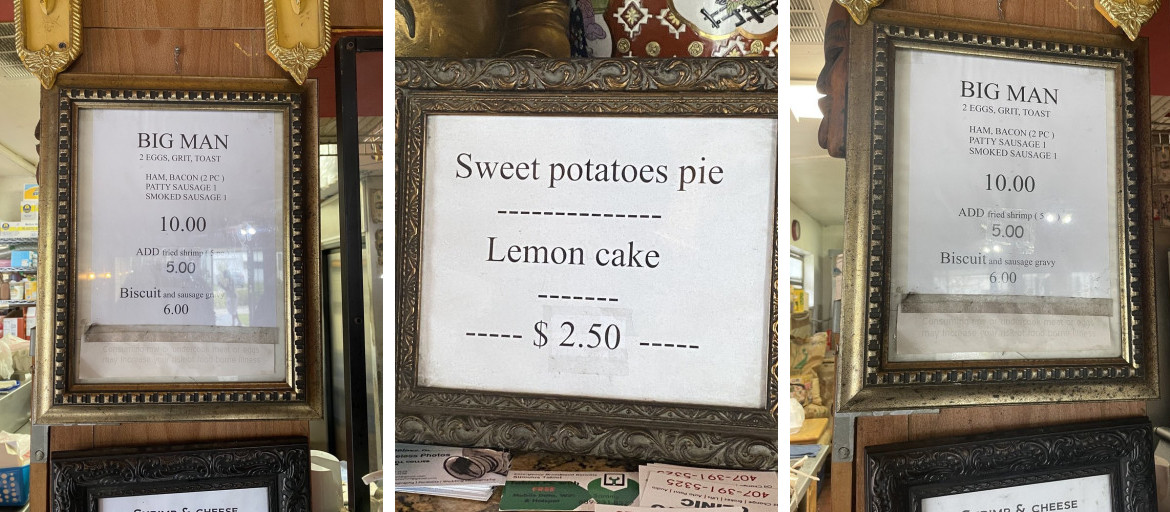 BIG MAN
2 EGGS, GRIT, TOAST
HAM, BACON (2 PC )
PATTY SAUSAGE 1
SMOKED SAUSAGE 1
10.00
ADD fried shrimp ( 5
5.00
Biscuit and sausage
6.00
SHRIMP & CHEESE
Sweet potatoes pie
--------------
Lemon cake
-------
----- $ 2.50 -----
FREE
407-391-5325
CLINIC
407-391-5325
BIG MAN
2 EGGS, GRIT, TOAST
HAM, BACON (2 PC )
PATTY SAUSAGE 1
SMOKED SAUSAGE 1
10.00
ADD fried shrimp ( 5 )
5.00
Biscuit and sausage gravy
6.00
SHRIMP & CHEESE